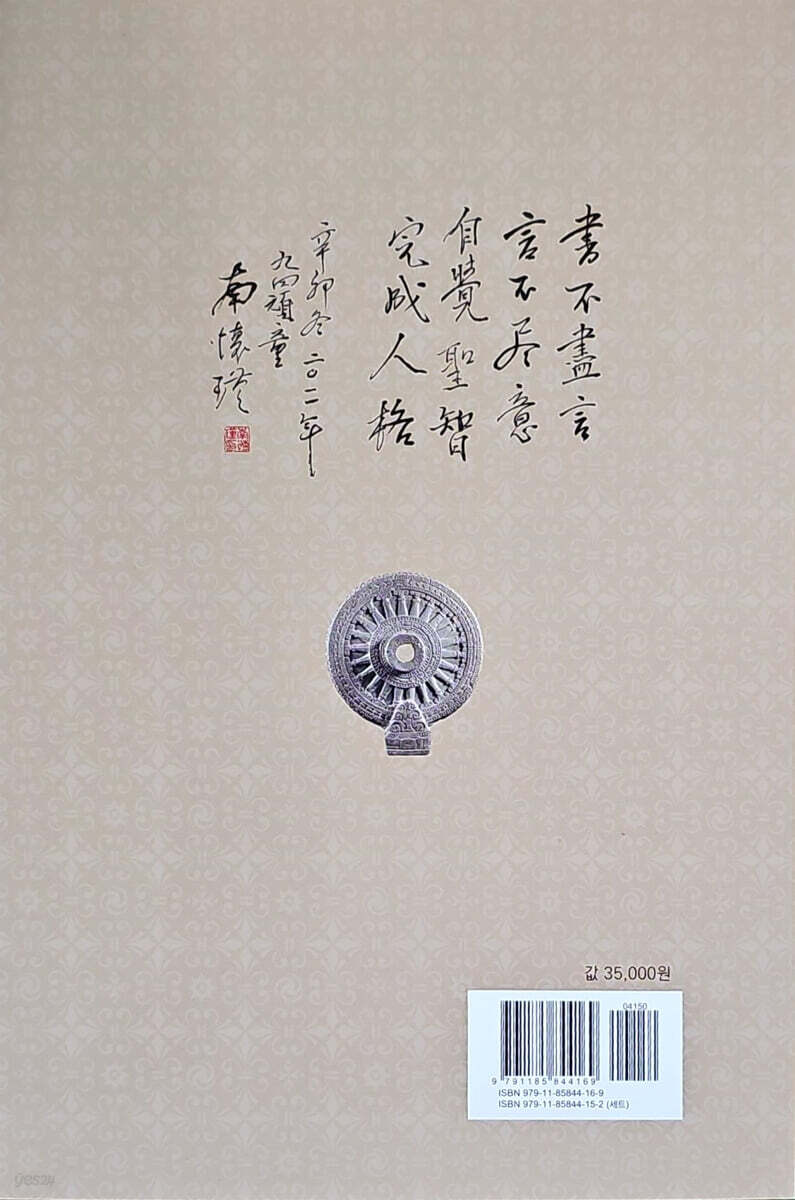 書不盡言
言不尽意
自覺聖智
完成人格
辛卯冬二〇一一年
九四頑童
南懷瑾
값 35,000원
04150
9 791185 844169
ISBN 979-11-85844-16-9
ISBN 979-11-85844-15-2 (세트)
yes24